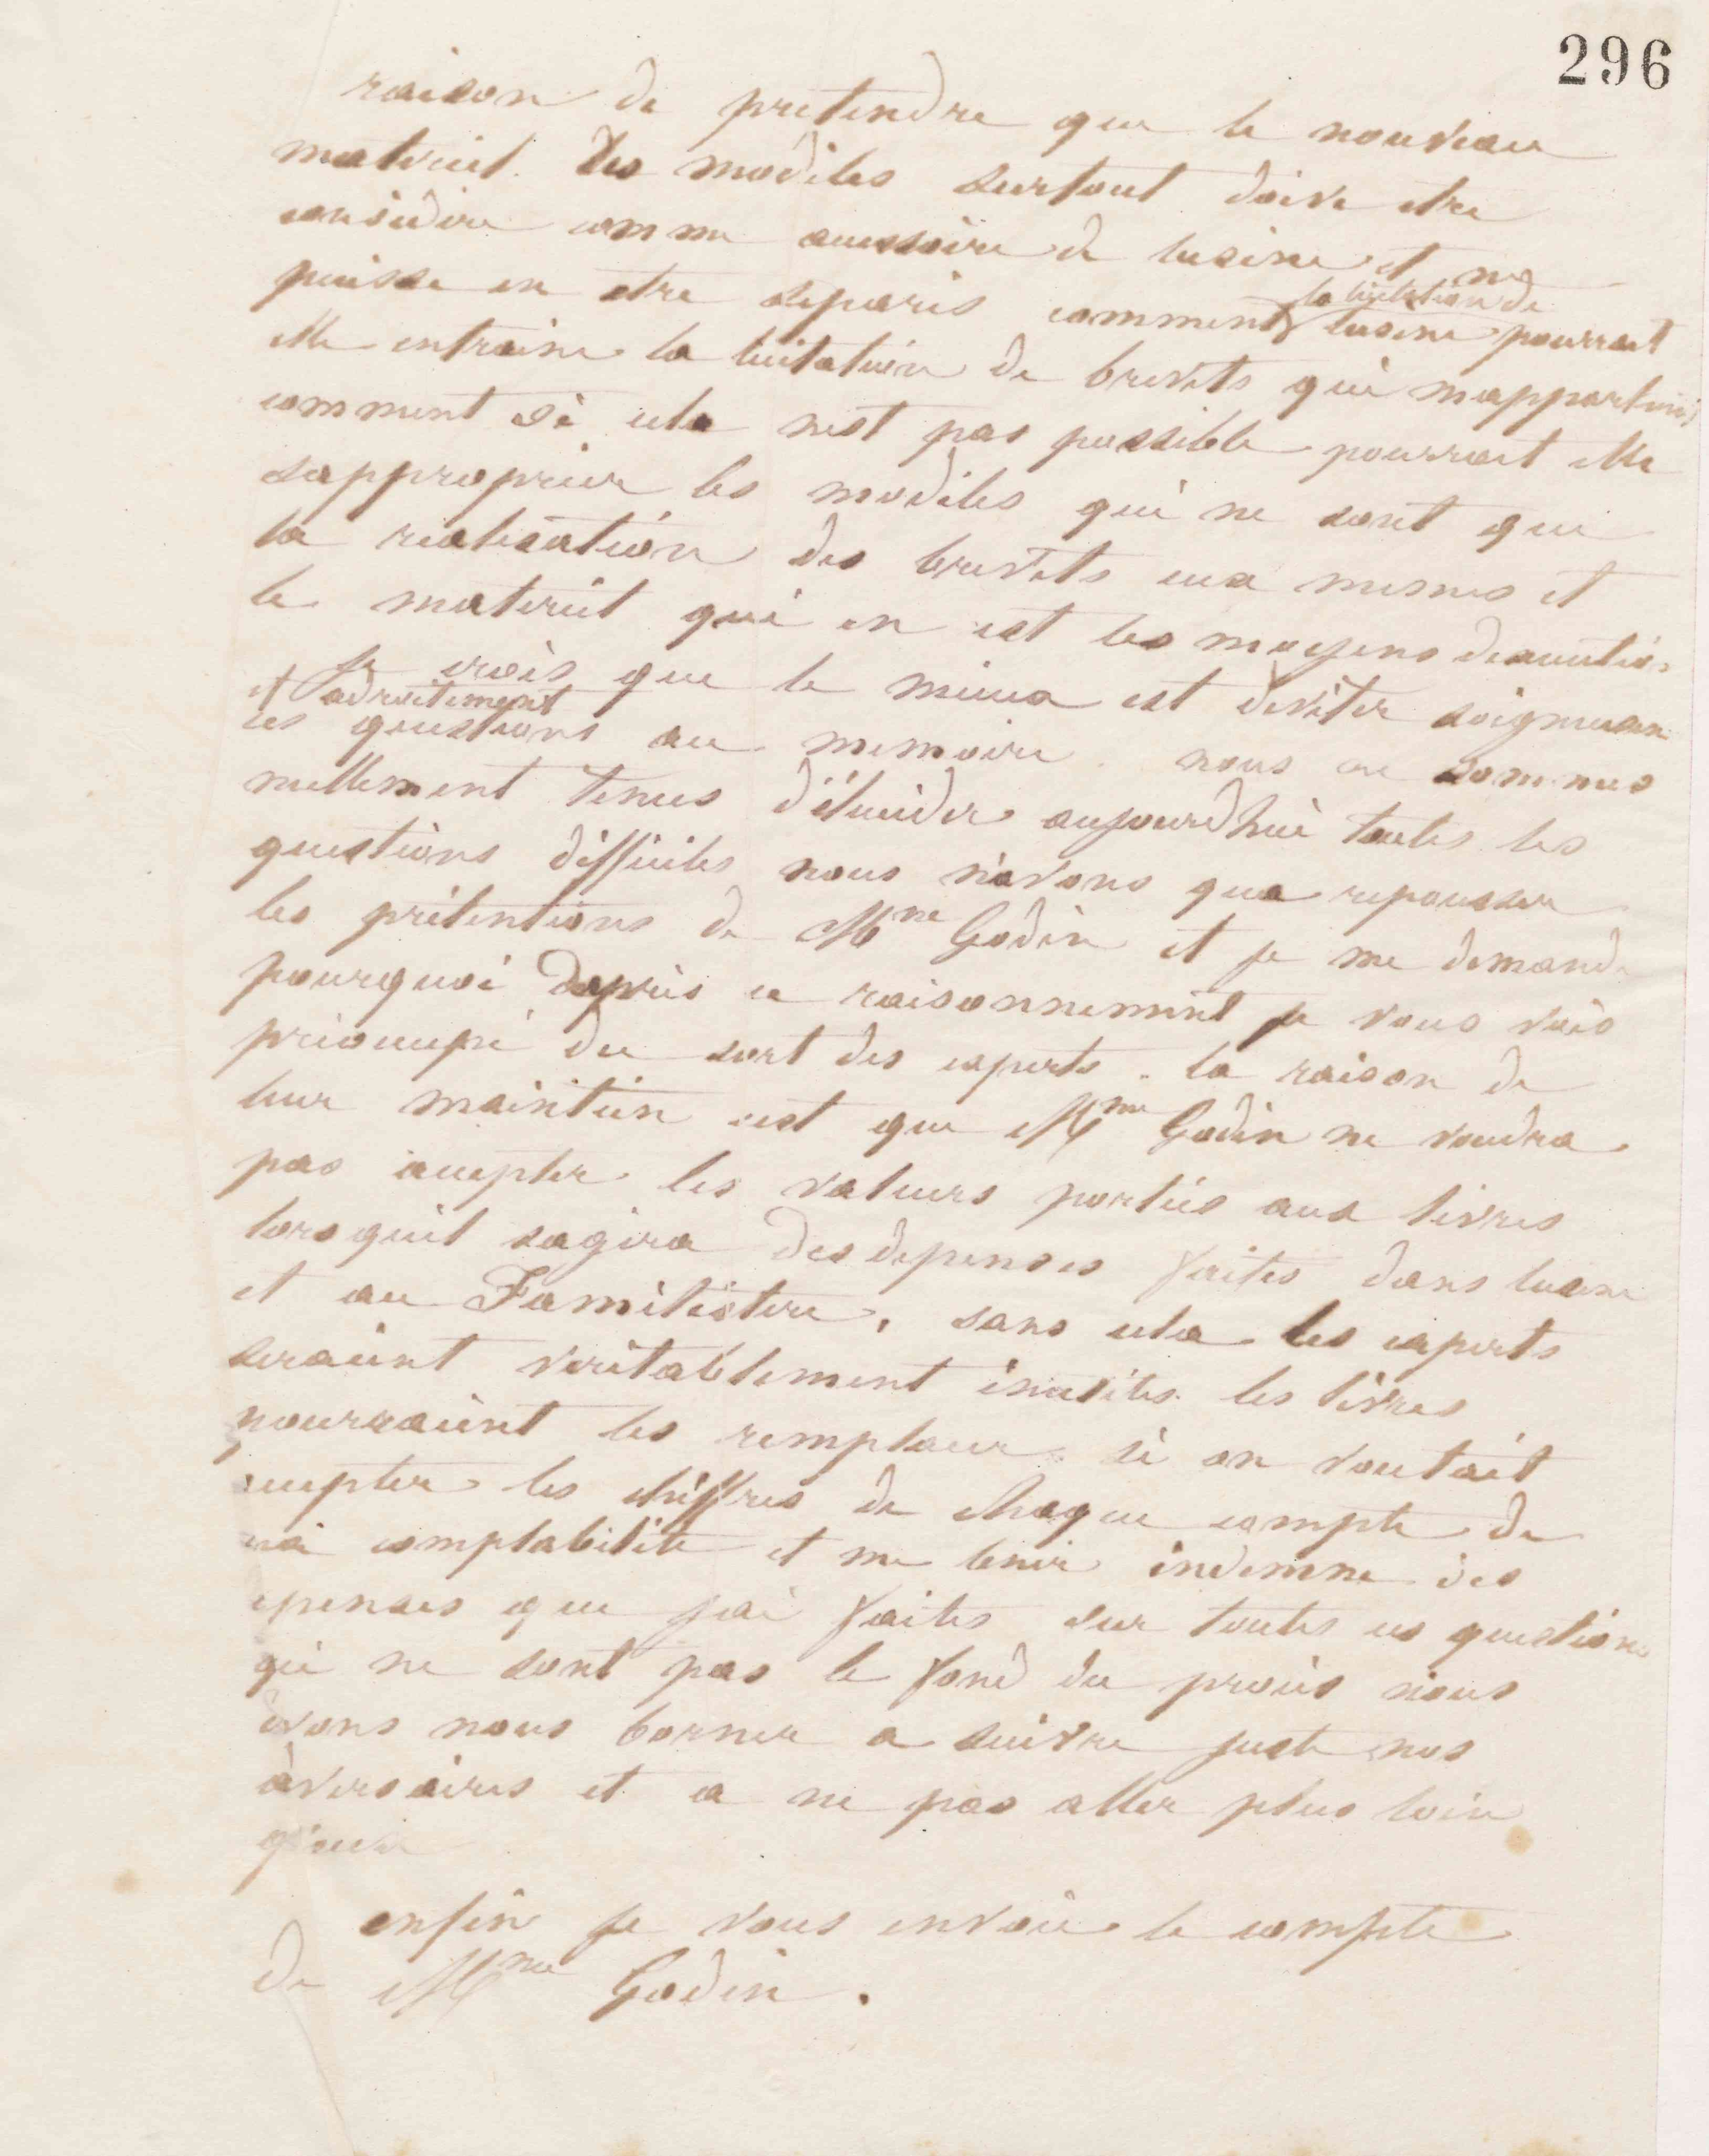 296
raison de pretendre que le nouveau
materiel. des modeles surtout doive etre
considere comme accessoire de lusine et ne
puisse en etre separés comment la licitation de lusine pourrait
elle entrainer la licitation de brevets qui mappartiennent
comment si cela nest pas possible pourrait elle
sapproprier les modeles qui ne sont que
la realisation des brevets eux memes et
le materiel qui en est les moyens dexecution
je crois que le mieux est deviter soigneusem
et adroitement
ces questions au memoire. nous ne sommes
nullement tenus d'élucider aujourdhui toutes les
questions difficiles nous n'avons qua repousser
les prétentions de Mme Godin et je me demande
pourquoi dapres ce raisonnement je vous vois
préoccupé du sort des experts. la raison de
leur maintien est que Mme Godin ne voudra
pas accepter les valeurs portées aux livres
lorsquil sagira des depenses faites dans lusine
et au Familistere, sans cela les experts
seraient veritablement inutiles les livres
pourraient les remplacer. si on voulait
accepter les chiffres de chaque compte de
ma comptabilité et me tenir indemne des
depenses que jai faites sur toutes ces questions
qui ne sont pas le fond du procès nous
devons nous borner a suivre juste nos
adversaires et a ne pas aller plus loin
qu'eux
enfin je vous envoie le compte
de Mme Godin.